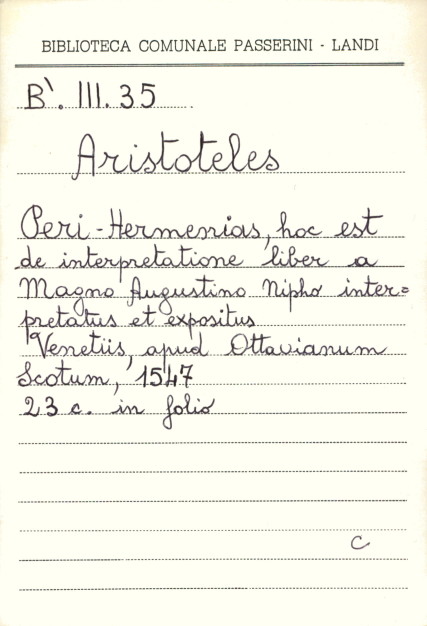 BIBLIOTECA COMUNALE PASSERINI - LANDI
B`. III. 35
Aristoteles
Peri-Hermenias, hoc est
de interpretatione liber a
Magno Augustino Nipho inter=
pretatus et expositus
Venetiis, apud Ottavianum
Scotum, 1547
23 c. in folio
C